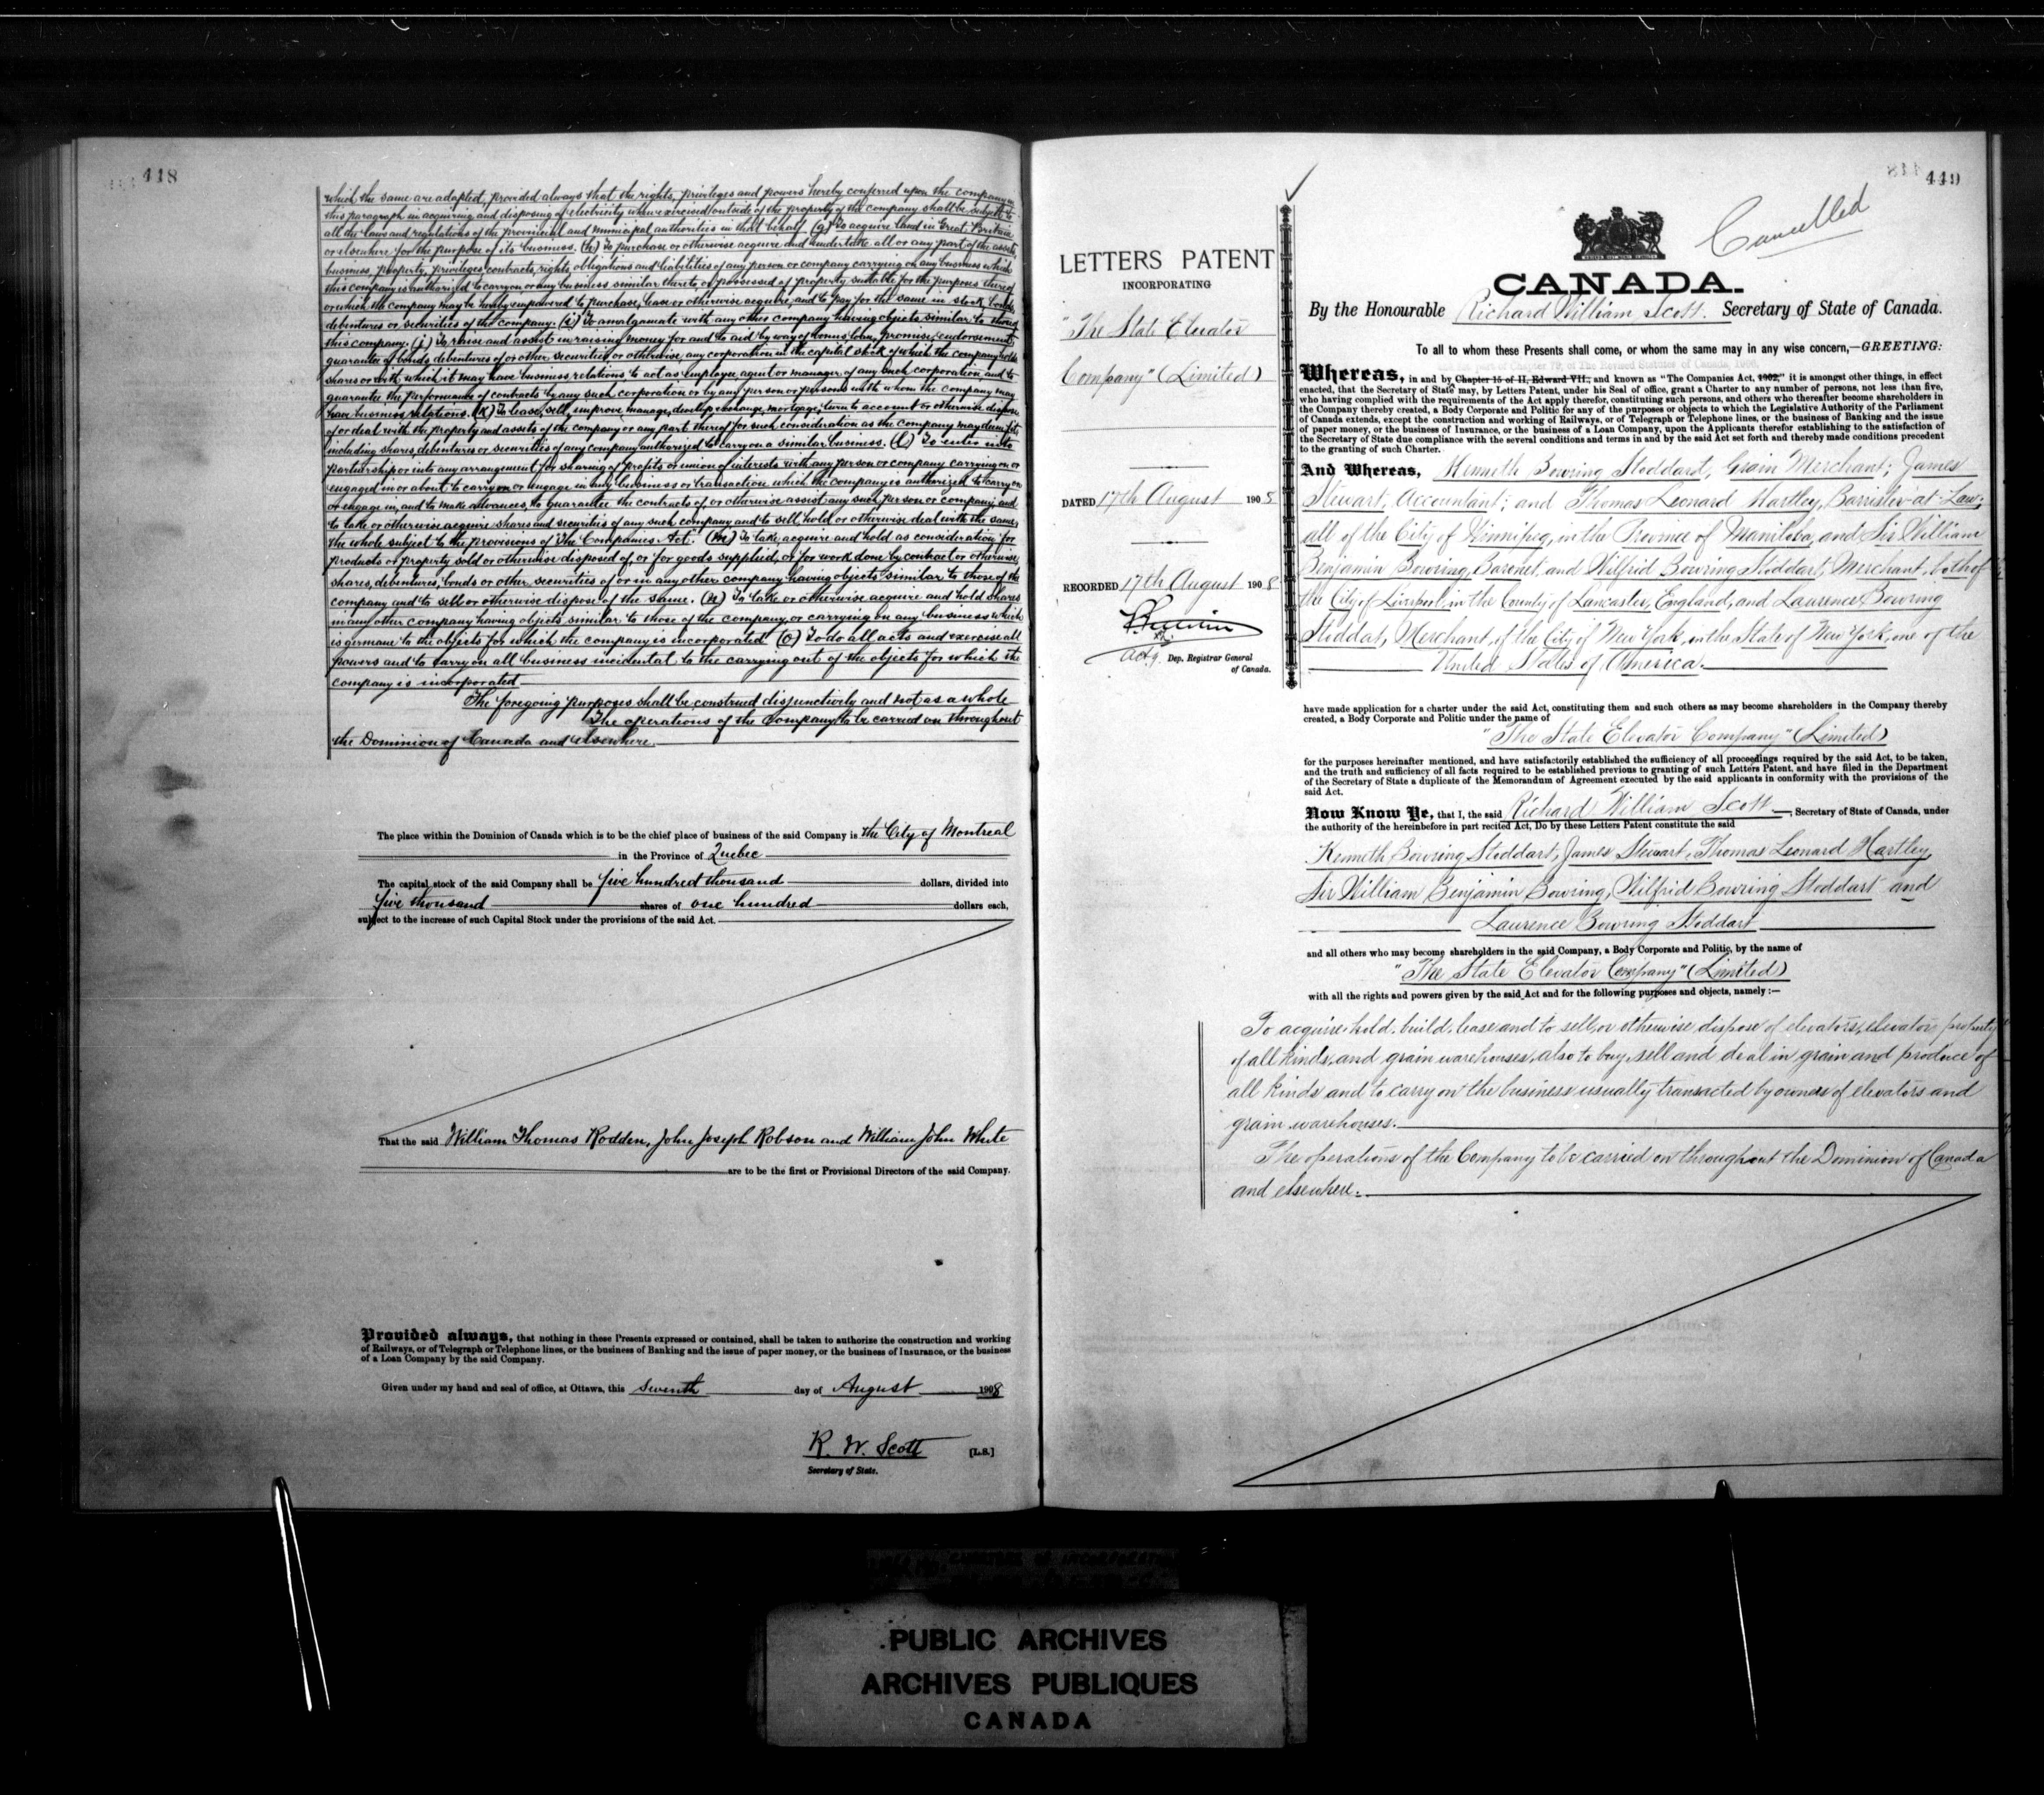 418
which the same are adapted, provided always that the rights, privileges and powers hereby conferred upon the company in
this paragraph in acquiring and disposing of electricity when exercised outside of the property of the company shall be subject to
all the laws and regulations of the provincial and municipal authorities in that behalf. (g) To acquire land in Great Britain
or elsewhere for the purpose of its business. (h) To purchase or otherwise acquire and undertake all or any part of the assets,
business, property, privileges, contracts, rights, obligations and liabilities of any person or company carrying on any business which
this company is authorized to carry on or any business similar thereto, or possessed of property suitable for the purposes thereof
or which the company may be hereby empowered to purchase, lease or otherwise acquire, and to pay for the same in stock, bonds,
debentures or securities of the company. (i) To amalgamate with any other company having objects similar to those of
this company. (j) To raise and assist in raising money for and to aid by way of bonus, loan, promise, endorsement,
guarantee of bonds, debentures of or other securities or otherwise any corporation in the capital stock of which the company holds
shares or with which it may have business relations, to act as employee, agent or manager of any such corporation, and to
guarantee the performance of contracts by any such corporation or by any person or persons with whom the company may
have business relations. (k) To lease, sell, improve, manage, develop, exchange, mortgage, turn to account or otherwise dispose
of or deal with the property and assets of the company or any part thereof for such consideration as the company may deem fit,
including shares, debentures or securities of any company authorized to carry on a similar business. (l) To enter into
partnership or into any arrangement for sharing of profits or union of interests with any person or company carrying on or
engaged in or about to carry on or engage in any business or transaction which the company is authorized to carry on
or engage in, and to make advances, to guarantee the contracts of, or otherwise assist any such person or company, and
to take or otherwise acquire shares and securities of any such company and to sell, hold or otherwise deal with the same,
the whole subject to the provisions of "The Companies Act." (m) To take, acquire and hold as consideration for
products or property sold or otherwise disposed of, or for goods supplied, or for work done by contract or otherwise,
shares, debentures, bonds or other securities of or in any other company having objects similar to those of the
company and to sell or otherwise dispose of the same. (n) To take or otherwise acquire and hold shares
in any other company having objects similar to those of the company, or carrying on any business which
is germane to the objects for which the company is incorporated (o) To do all acts and exercise all
powers and to carry on all business incidental to the carrying out of the objects for which the
company is incorporated
The foregoing purposes shall be construed disjunctively and not as a whole
The operations of the Company to be carried on throughout
the Dominion of Canada and elsewhere.
The place within the Dominion of Canada which is to be the chief place of business of the said Company is the City of Montreal
in the Province of Quebec
The capital stock of the said Company shall be five hundred thousand dollars, divided into
five thousand shares of one hundred dollars each,
subject to the increase of such Capital Stock under the provisions of the said Act.
That the said William Thomas Rodden, John Joseph Robson and William John White
are to be the first or Provisional Directors of the said Company.
Provided always, that nothing in these Presents expressed or contained, shall be taken to authorize the construction and working
of Railways, or of Telegraph or Telephone lines, or the business of Banking and the issue of paper money, or the business of Insurance, or the business
of a Loan Company by the said Company.
Given under my hand and seal of office, at Ottawa, this Seventh day of August 1908
R. W. Scott [L.S.]
Secretary of State.
449
Cancelled
LETTERS PATENT
INCORPORATING
"The State Elevator
Company" (Limited)
DATED 17th August 1908
RECORDED 17th August 1908
Actg. Dep. Registrar General
of Canada.
CANADA.
By the Honourable Richard William Scott. Secretary of State of Canada.
To all to whom these Presents shall come, or whom the same may in any wise concern,—GREETING:
Whereas, in and by Chapter 15 of II, Edward VII., and known as "The Companies Act, 1902," it is amongst other things, in effect
enacted, that the Secretary of State may, by Letters Patent, under his Seal of office, grant a Charter to any number of persons, not less than five,
who having complied with the requirements of the Act apply therefor, constituting such persons, and others who thereafter become shareholders in
the Company thereby created, a Body Corporate and Politic for any of the purposes or objects to which the Legislative Authority of the Parliament
of Canada extends, except the construction and working of Railways, or of Telegraph or Telephone lines, or the business of Banking and the issue
of paper money, or the business of Insurance, or the business of a Loan Company, upon the Applicants therefor establishing to the satisfaction of
the Secretary of State due compliance with the several conditions and terms in and by the said Act set forth and thereby made conditions precedent
to the granting of such Charter.
And Whereas, Kenneth Bowring Stoddart, Grain Merchant; James
Steuart, Accountant; and Thomas Leonard Hartley, Barrister-at-Law;
all of the City of Winnipeg, in the Province of Manitoba, and Sir William
Benjamin Bowring, Baronet, and Wilfrid Bowring Stoddart, Merchant, both of
the City of Liverpool, in the County of Lancaster, England, and Laurence Bowring
Stoddart, Merchant, of the City of New York, in the State of New York, one of the
United States of America.
have made application for a charter under the said Act, constituting them and such others as may become shareholders in the Company thereby
created, a Body Corporate and Politic under the name of
"The State Elevator Company" (Limited)
for the purposes hereinafter mentioned, and have satisfactorily established the sufficiency of all proceedings required by the said Act, to be taken,
and the truth and sufficiency of all facts required to be established previous to granting of such Letters Patent, and have filed in the Department
of the Secretary of State a duplicate of the Memorandum of Agreement executed by the said applicants in conformity with the provisions of the
said Act.
Now Know Ye, that I, the said Richard William Scott, Secretary of State of Canada, under
the authority of the hereinbefore in part recited Act, Do by these Letters Patent constitute the said
Kenneth Bowring Stoddart, James Steuart, Thomas Leonard Hartley,
Sir William Benjamin Bowring, Wilfrid Bowring Stoddart and
Laurence Bowring Stoddart
and all others who may become shareholders in the said Company, a Body Corporate and Politic, by the name of
"The State Elevator Company" (Limited)
with all the rights and powers given by the said Act and for the following purposes and objects, namely :—
To acquire, hold, build, lease and to sell or otherwise dispose of elevators, elevator property
of all kinds, and grain warehouses, also to buy, sell and deal in grain and produce of
all kinds and to carry on the business usually transacted by owners of elevators and
grain warehouses.
The operations of the Company to be carried on throughout the Dominion of Canada
and elsewhere.
PUBLIC ARCHIVES
ARCHIVES PUBLIQUES
CANADA